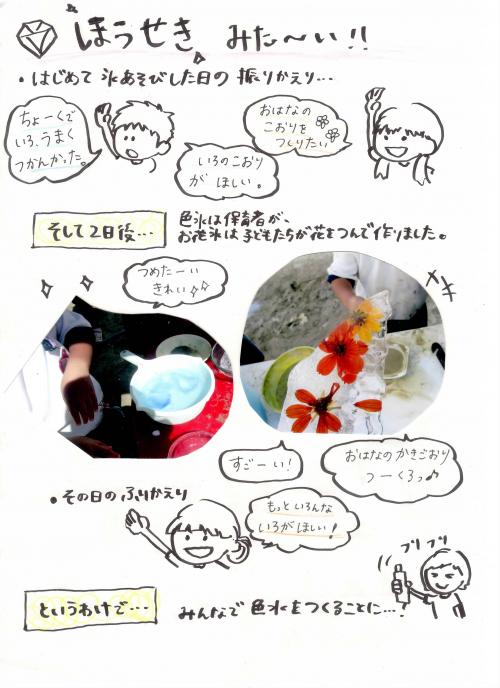 ほうせき みた〜い!!
・はじめて 氷あそびした日の 振りかえり…
ちょーくで
いろ、うまく
つかんかった。
おはなの
こおりを
つくりたい
いろのこおり
が ほしい。
そして2日後…
色氷は保育者が、
お花氷は子どもたちが花をつんで作りました。
つめたーい
きれい
すごーい!
おはなのかきごおり
つーくろっ♪
・その日のふりかえり
もっといろんな
いろがほしい!
フリフリ
というわけで…
みんなで 色水をつくることに…!